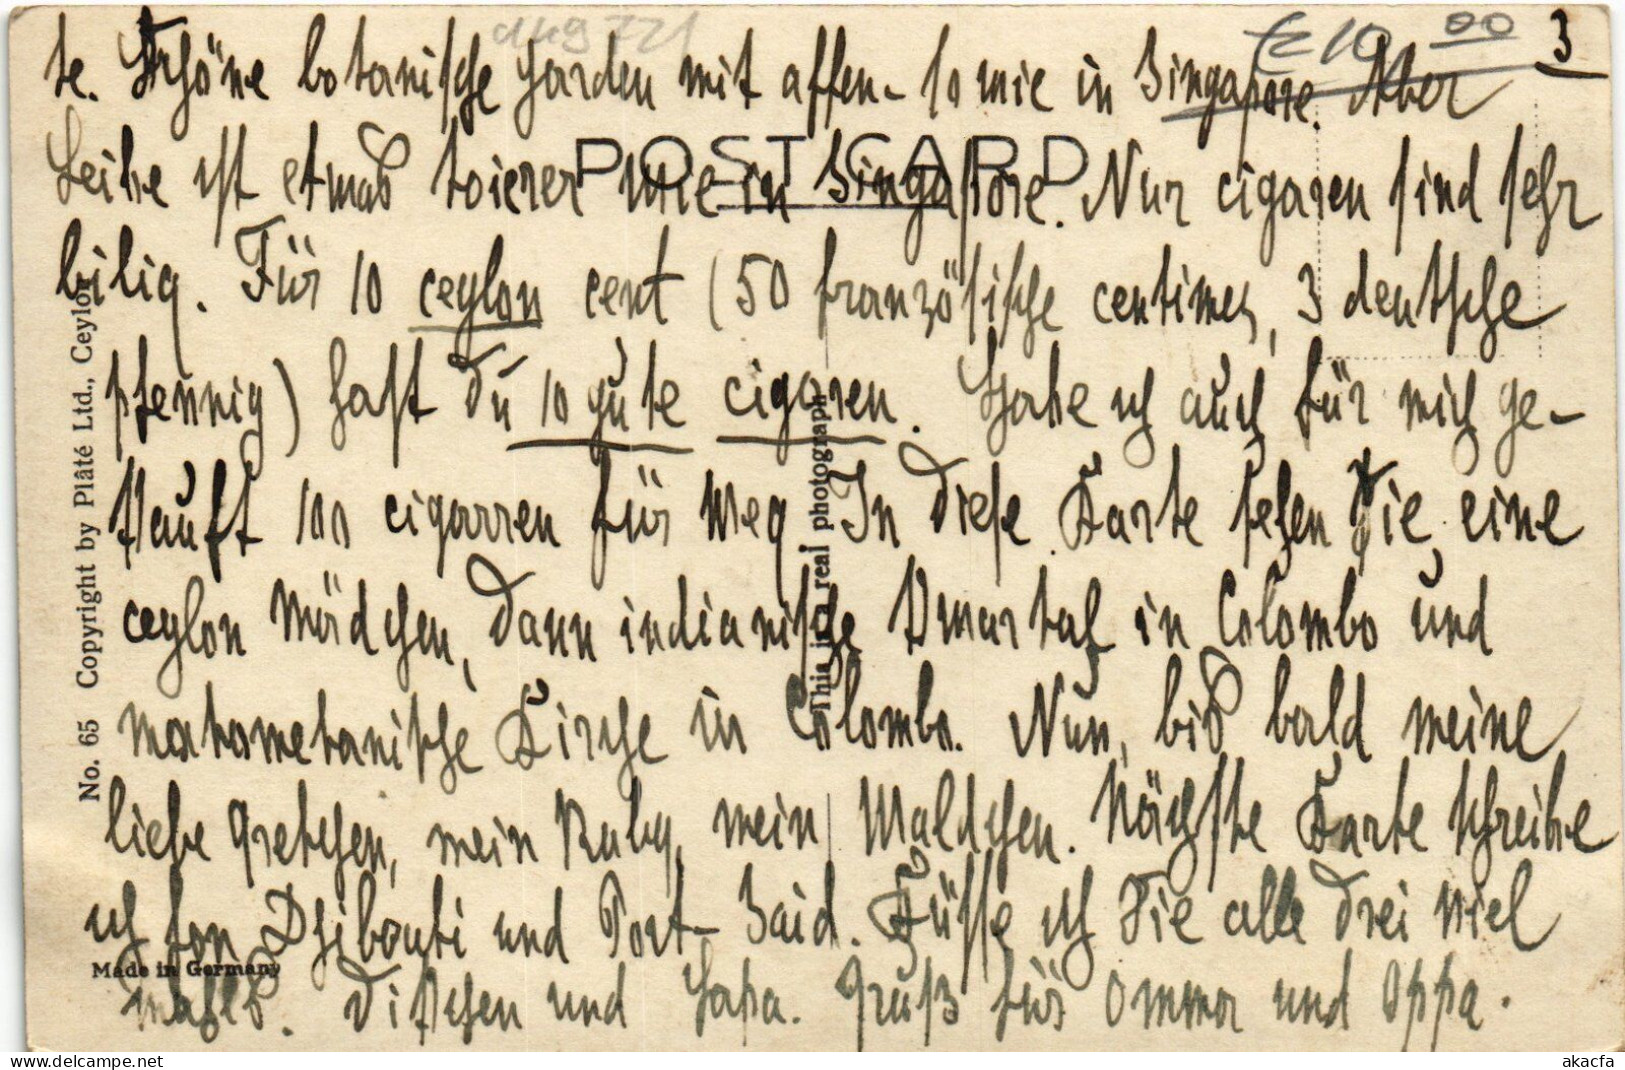 aug 721
€ 10 00
3
te. Schöne botanische garden mit affen- so wie in Singapore. Aber
POST CARD
Leibe ist etwas toierer wie in Singapore. Nur cigaren sind sehr
bilig. Für 10 ceylon cent (50 französische centimes, 3 deutsche
pfennig) hast du 10 gute cigaren. Habe ich auch für mich ge-
kauft 100 cigarren für Weg. In diese Karte sehen Sie, eine
ceylon Mädchen, dann indianische in Colombo und
mohametanische Kirche in Colombo. Nun, bis bald meine
liebe Gretchen, mein Ruby, mein Waldchen. Nächste Karte schreibe
ich fon Dzibouti und Port-Said. Küsse ich Sie alle drei viel
mahls. und Papa. Gruß für Omma und Oppa.
No. 65 Copyright by Plâté Ltd., Ceylon
This is a real photograph
Made in Germany
akacfa